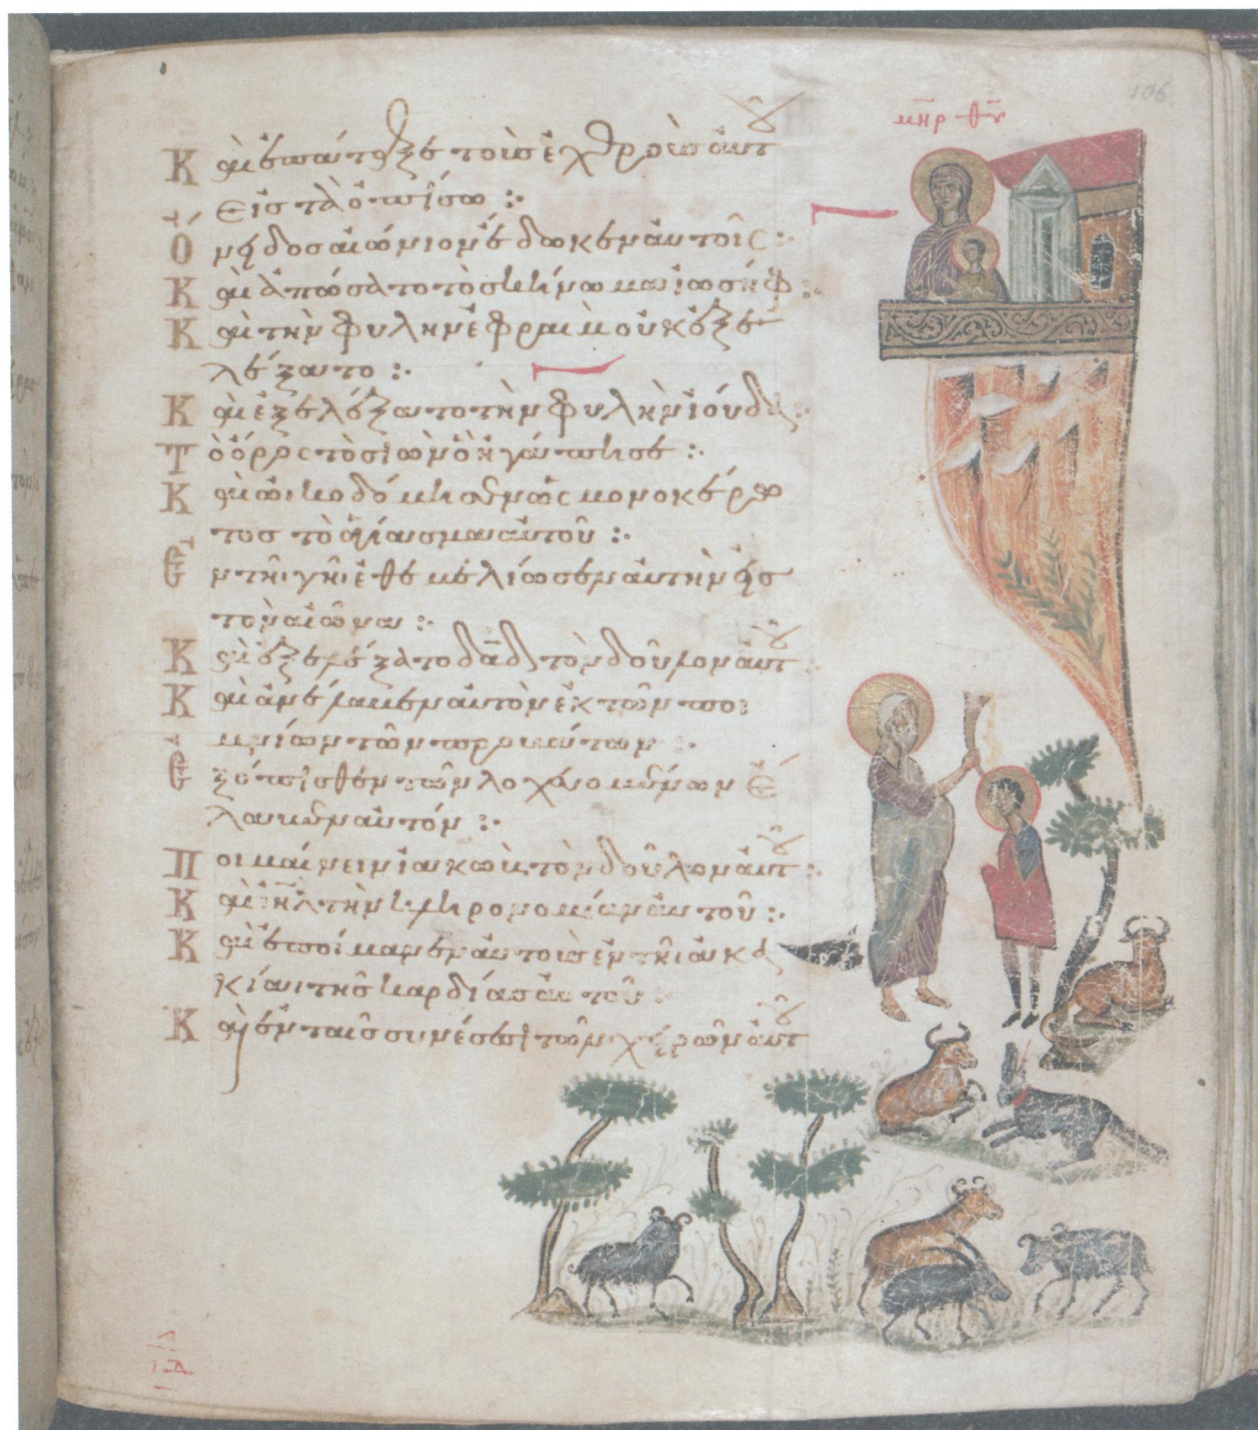 106
ΜΗΡ ΘΥ
Καὶ ἐπάταξε τοὺς ἐχθροὺς αὐτοῦ
εἰς τὰ ὀπίσω :·
Ὄνειδος αἰώνιον ἔδωκεν αὐτοῖς :·
Καὶ ἀπώσατο τὸ σκήνωμα ἰωσήφ :·
Καὶ τὴν φυλὴν ἐφραὶμ οὐκ ἐξε
λέξατο :·
Καὶ ἐξελέξατο τὴν φυλὴν ἰούδα :·
Τὸ ὄρος τὸ σιὼν ὃ ἠγάπησε :·
Καὶ ὠικοδόμησεν ὡς μονοκέρω
τος τὸ ἁγίασμα αὐτοῦ :·
Ἐν τῆι γῆι ἐθεμελίωσεν αὐτὴν εἰς
τὸν αἰῶνα :·
Καὶ ἐξελέξατο δαδ τὸν δοῦλον αὐτοῦ :·
Καὶ ἀνέλαβεν αὐτὸν ἐκ τῶν ποι
μνίων τῶν προβάτων :·
Ἐξόπισθεν τῶν λοχευομένων ἔ
λαβεν αὐτόν :·
Ποιμαίνειν ἰακὼβ τὸν δοῦλον αὐτοῦ :·
Καὶ ιηλ τὴν κληρονομίαν αὐτοῦ :·
Καὶ ἐποίμανεν αὐτοὺς ἐν τῆι ἀκα
κίαι τῆς καρδίας αὐτοῦ :
Καὶ ἐν ταῖς συνέσεσι τῶν χειρῶν αὐτοῦ